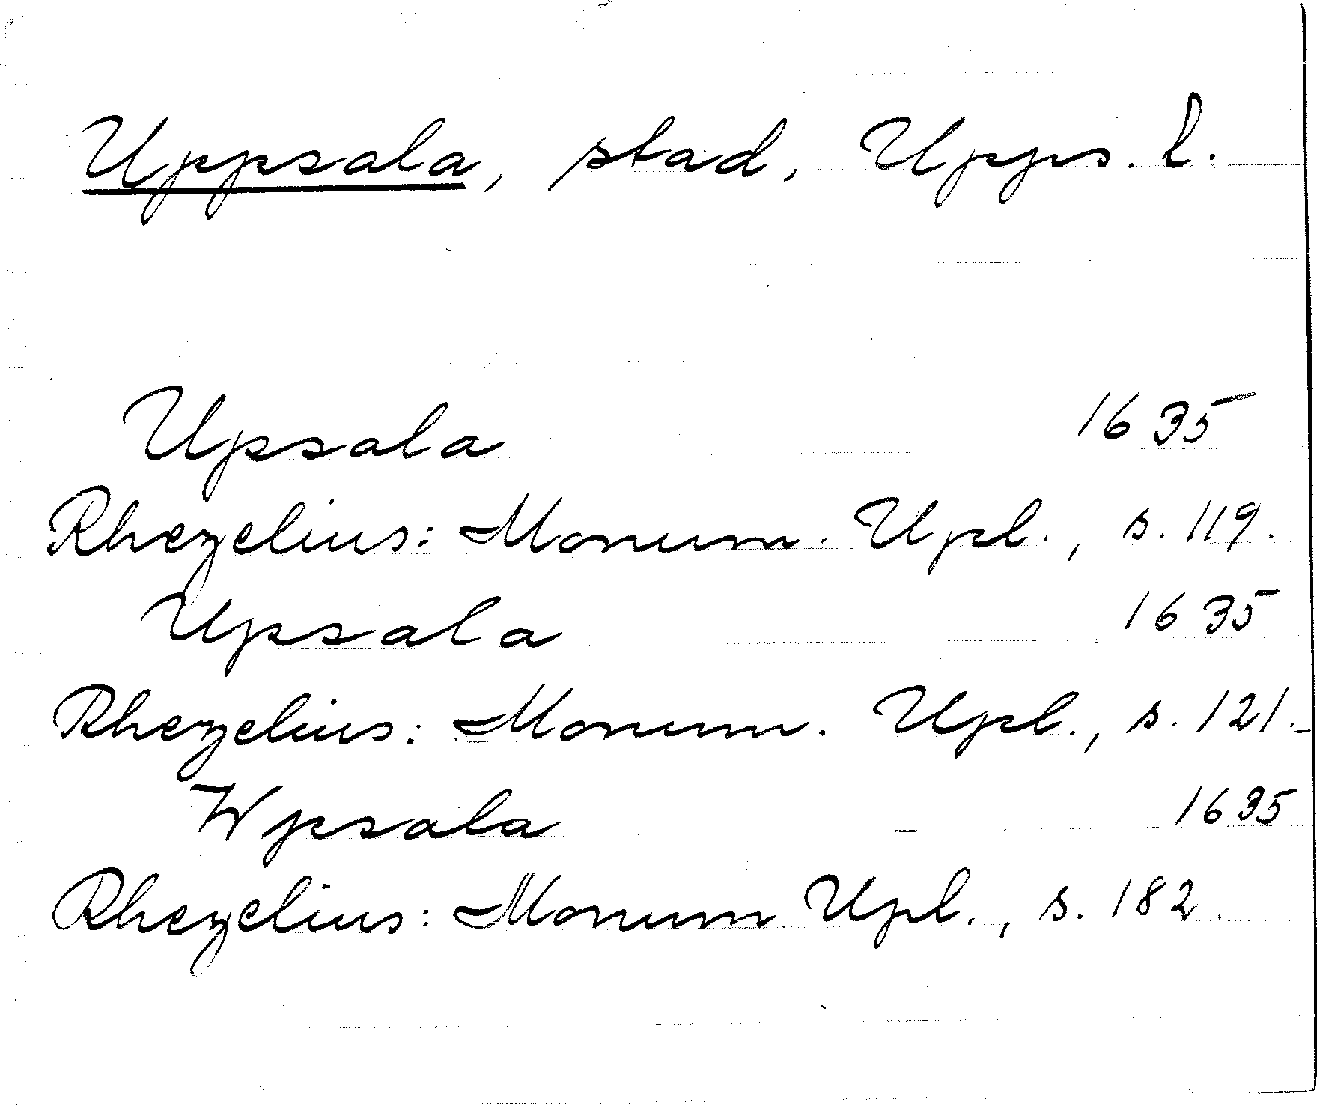 Uppsala, stad, Upps. l.
Upsala 1635
Rhezelius: Monum. Upl., s. 119.
Upsala 1635
Rhezelius: Monum. Upl., s. 121.
Wpsala 1635
Rhezelius: Monum Upl., s. 182.